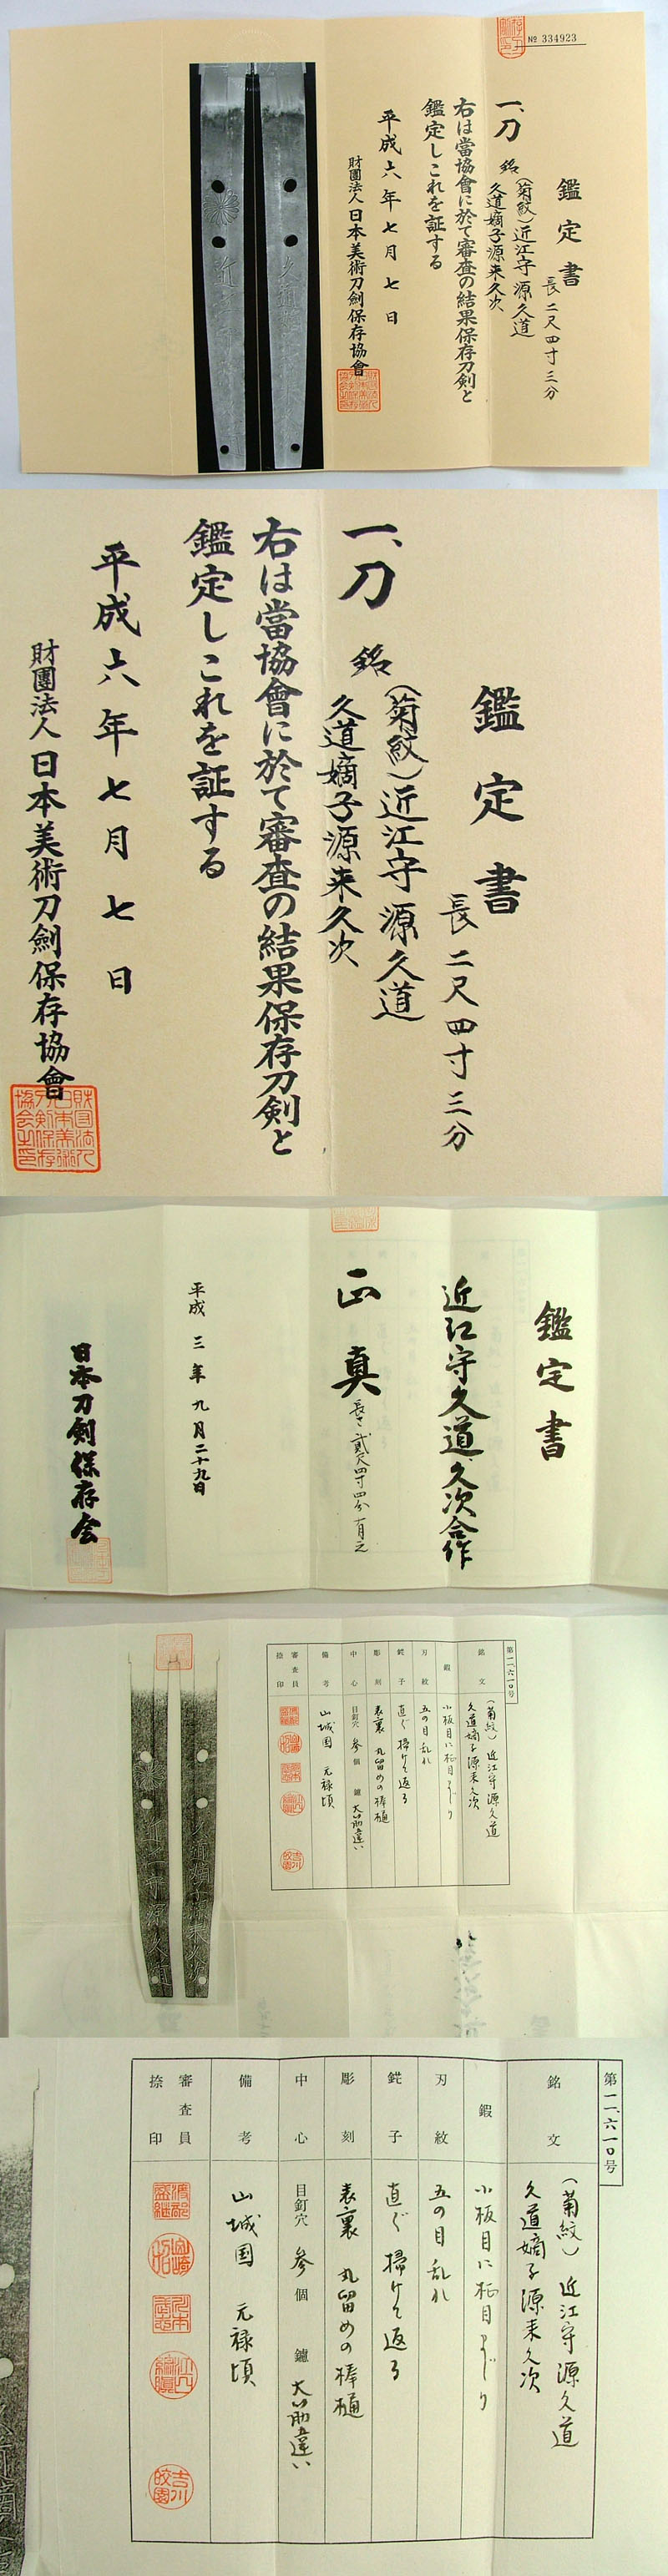 № 334923
鑑定書
長 二尺四寸三分
一、刀 銘
(菊紋)近江守源久道
久道嫡子源来久次
右は當協會に於て審査の結果保存刀剣と
鑑定しこれを証する
平成六年七月七日
財團法人 日本美術刀劍保存協會
鑑定書
長 二尺四寸三分
一、刀 銘
(菊紋)近江守源久道
久道嫡子源来久次
右は當協會に於て審査の結果保存刀剣と
鑑定しこれを証する
平成六年七月七日
財團法人 日本美術刀劍保存協會
鑑定書
近江守久道久次合作
正真
長さ 貳尺四寸四分有之
平成三年九月二十九日
日本刀剣保存会
第一一、六一〇号
銘文
(菊紋) 近江守源久道
久道嫡子源来久次
鍛
小板目に柾目まじり
刃紋
五の目乱れ
鋩子
直ぐ掃けて返る
彫刻
表裏 丸留めの棒樋
中心
目釘穴 参個 鑢 大筋違い
備考
山城国 元禄頃
審査員
捺印
第一一、六一〇号
銘文
(菊紋) 近江守源久道
久道嫡子源来久次
鍛
小板目に柾目まじり
刃紋
五の目乱れ
鋩子
直ぐ掃けて返る
彫刻
表裏 丸留めの棒樋
中心
目釘穴 参個 鑢 大筋違い
備考
山城国 元禄頃
審査員
捺印